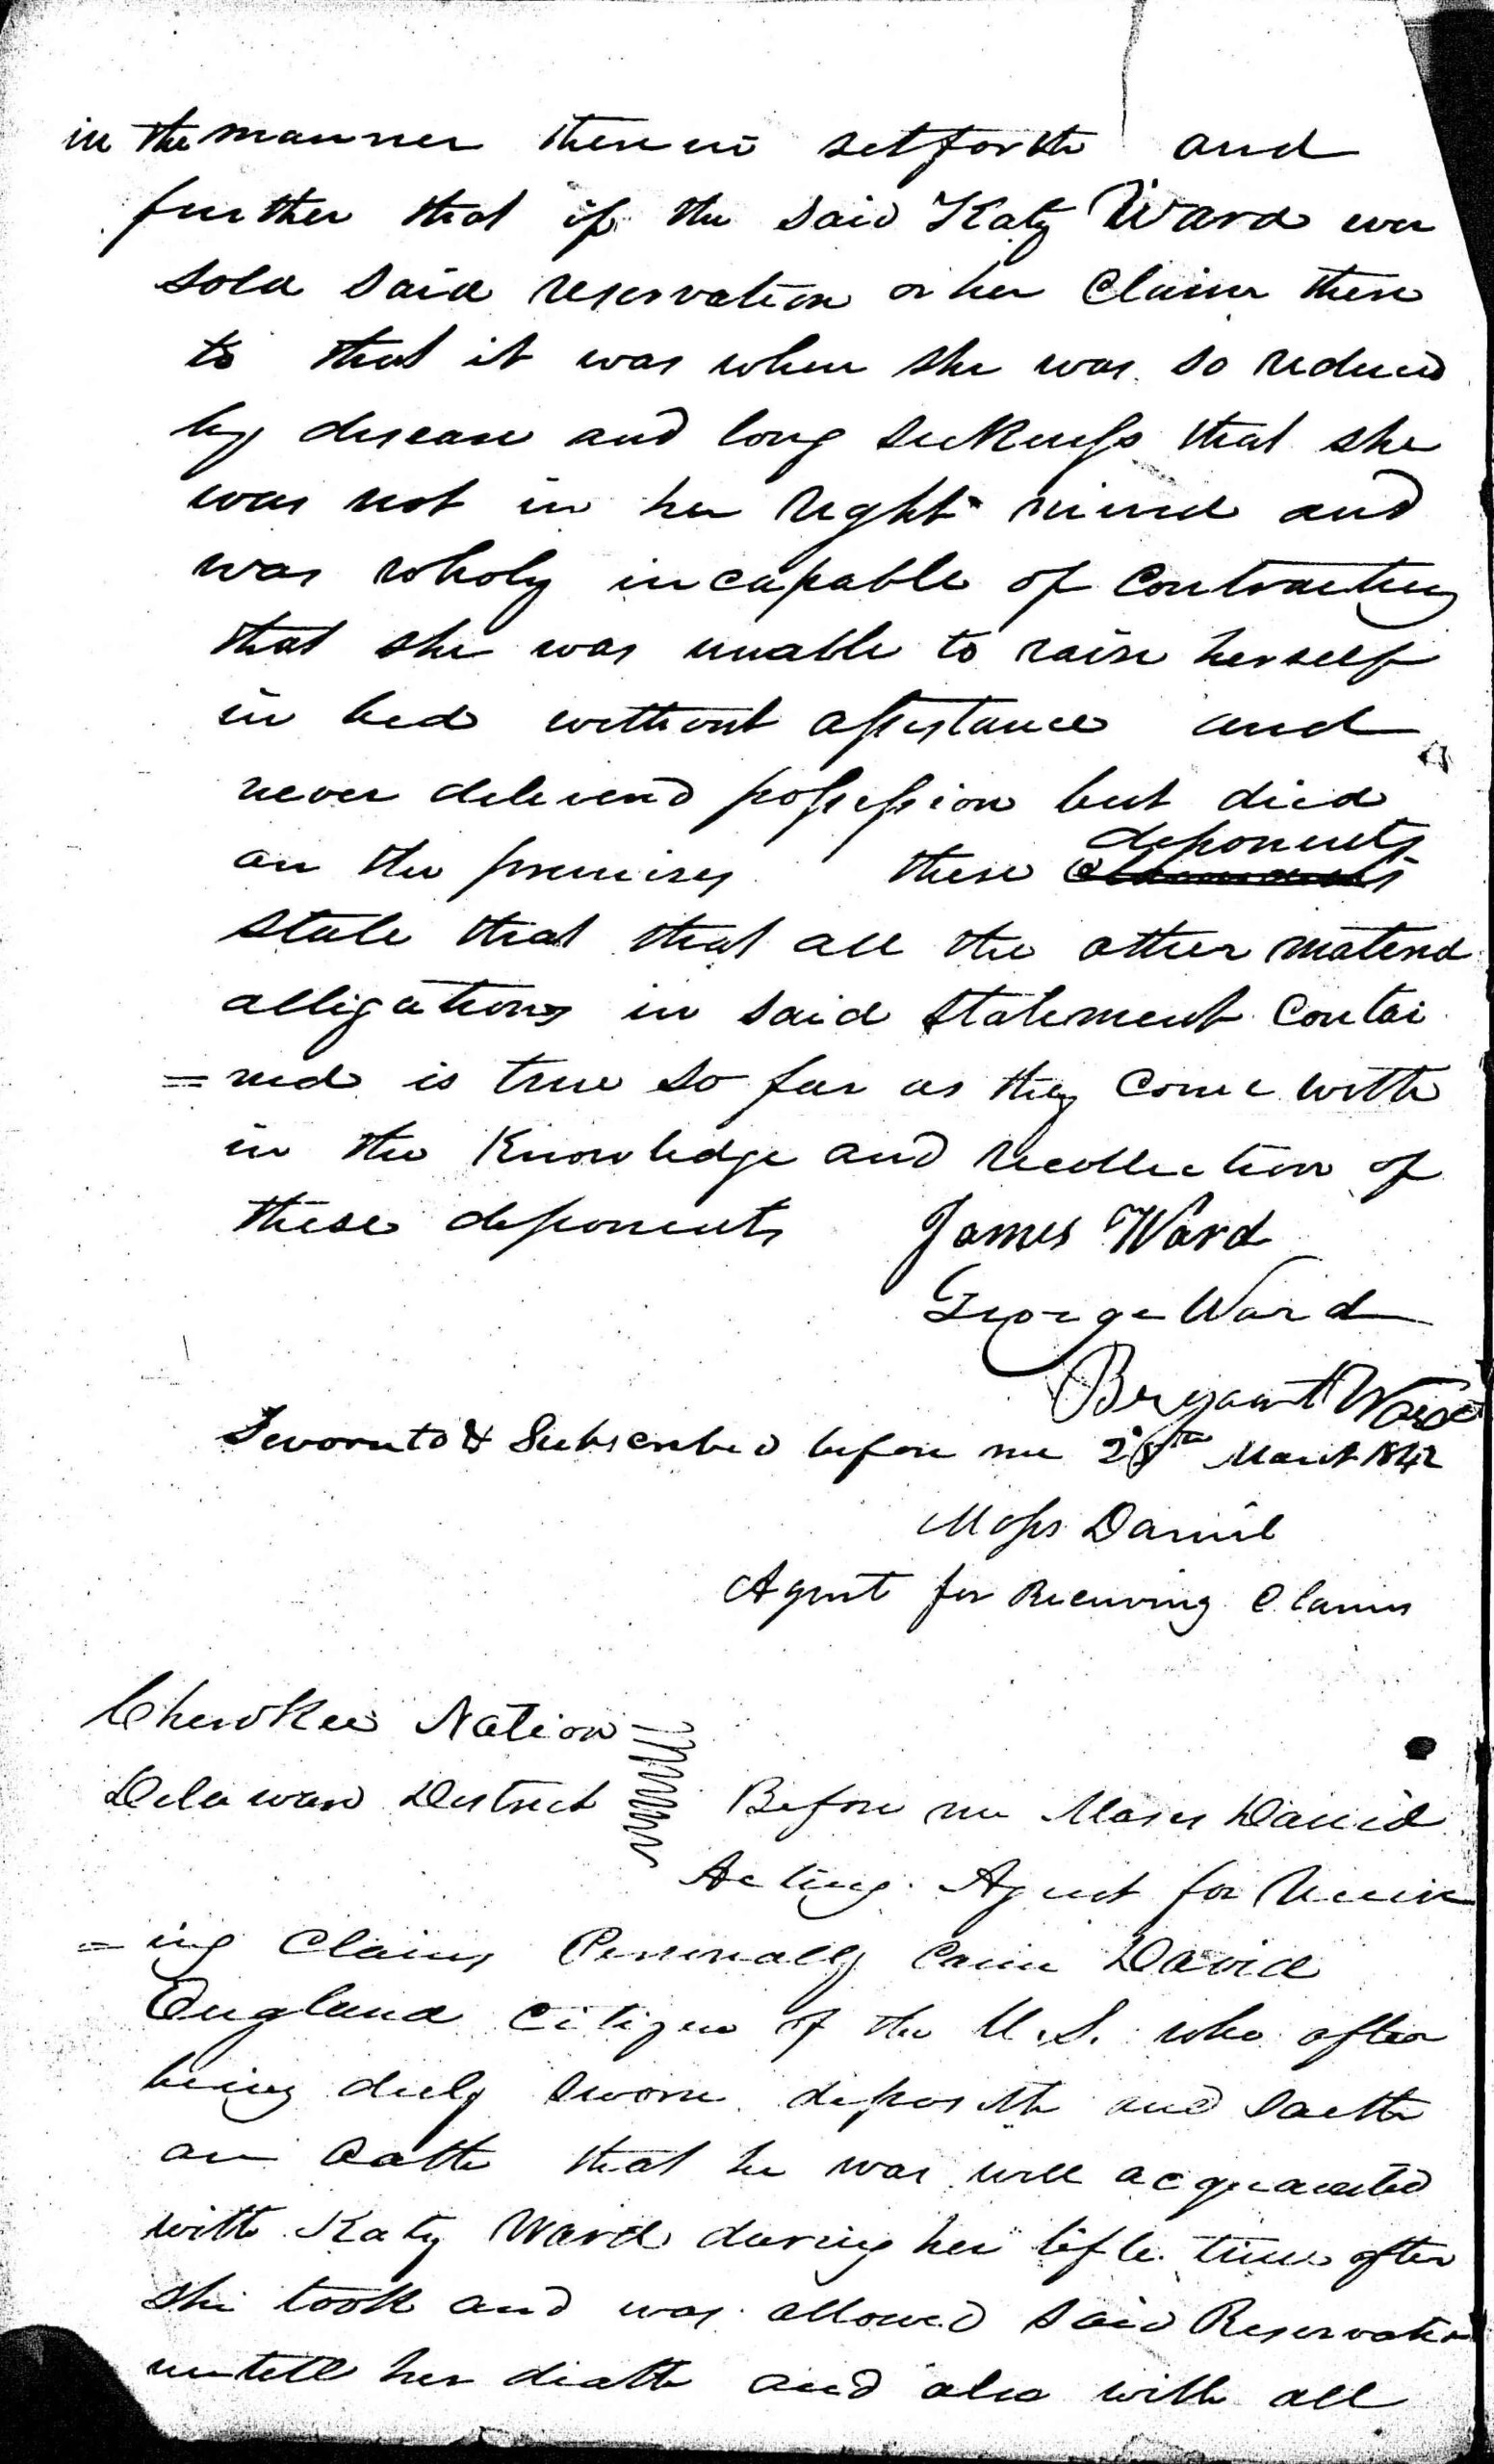 in the manner therein setforth and
further that if the said Katy Ward ever
sold said reservation or her Claim there
to that it was when she was so reduced
by disease and long sickness that she
was not in her right mind and
was wholy incapable of Contracting
that she was unable to raise herself
in bed without assistance and
never delivered possession but died
on the premises these deponents
state that that all the other material
alligations in said statement Contai
=ned is true so far as they come with
in the Knowledge and recollection of
these deponents James Ward
George Ward
Bryant Ward
Sworn to & Subscribed before me 28th March 1842
Moses Daniel
Agent for Receiving Claims
Cherokee Nation
Delaware District Before me Moses Daniel
Acting Agent for Receiv
=ing Claims Personally Came David
England Citizen of the U.S. who after
being duly sworn deposeth and saeth
on Oath that he was well acquainted
with Katy Ward during her life time after
she took and was allowed said Reservation
untill her death and also with all